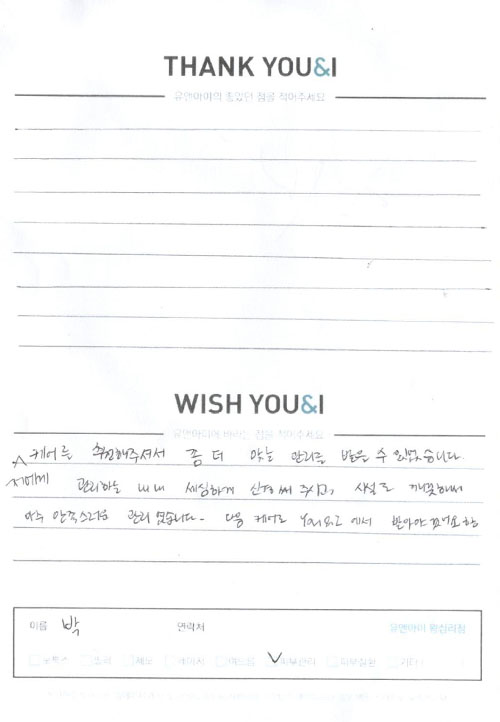 THANK YOU&I
유앤아이의 좋았던 점을 적어주세요
WISH YOU&I
유앤아이에 바라는 점을 적어주세요
케어를 추천해주셔서 좀 더 맞는 관리를 받을 수 있었습니다.
저에게
관리하는 내내 세심하게 신경써 주시고, 시설도 깨끗하며
아주 만족스러운 관리 였습니다. 다음 케어도 You&I 에서 받아야
이름 박 연락처 유앤아이 왕십리점
보톡스 필러 제모 레이저 여드름 피부관리 피부질환 기타 ( )